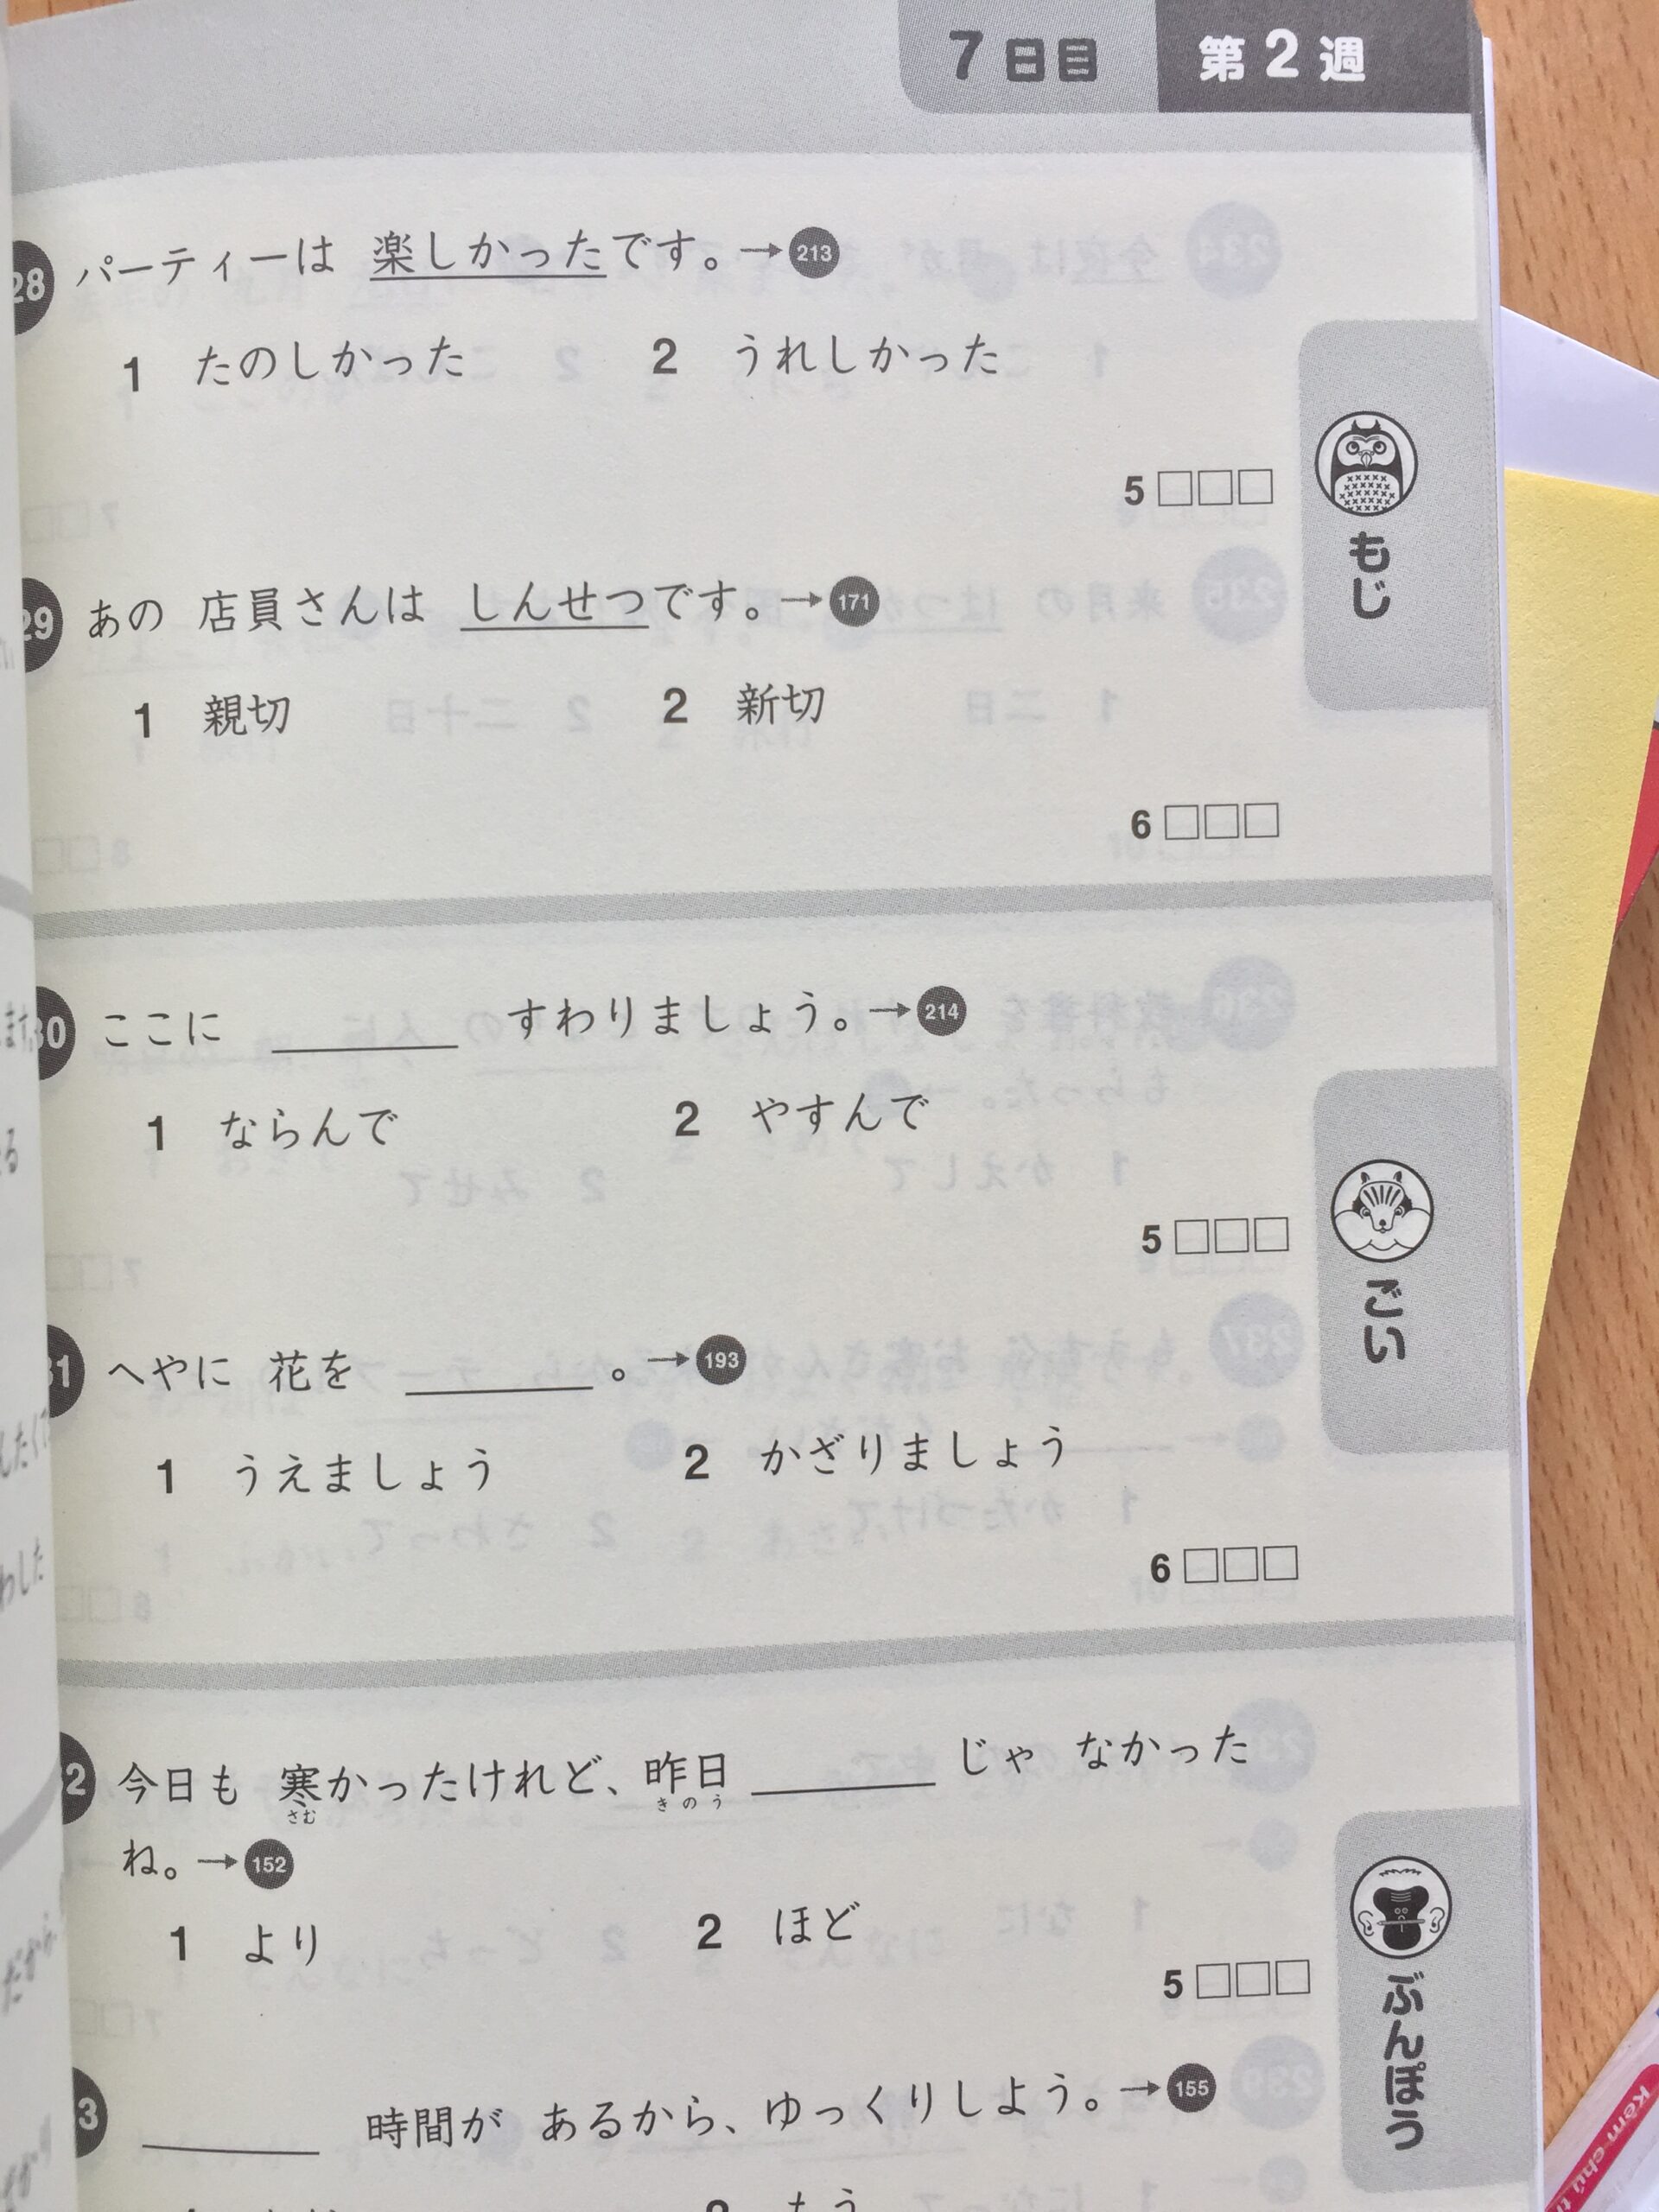 7日目 第2週
28 パーティーは 楽しかったです。→213
1 たのしかった 2 うれしかった
5 □□□
もじ
29 あの 店員さんは しんせつです。→171
1 親切 2 新切
6 □□□
30 ここに ______ すわりましょう。→214
1 ならんで 2 やすんで
5 □□□
ごい
31 へやに 花を ______。→193
1 うえましょう 2 かざりましょう
6 □□□
2 今日も 寒かったけれど、昨日______じゃ なかった
さむ きのう
ね。→152
1 より 2 ほど
5 □□□
ぶんぽう
3 ______ 時間が あるから、ゆっくりしよう。→155
2 もう